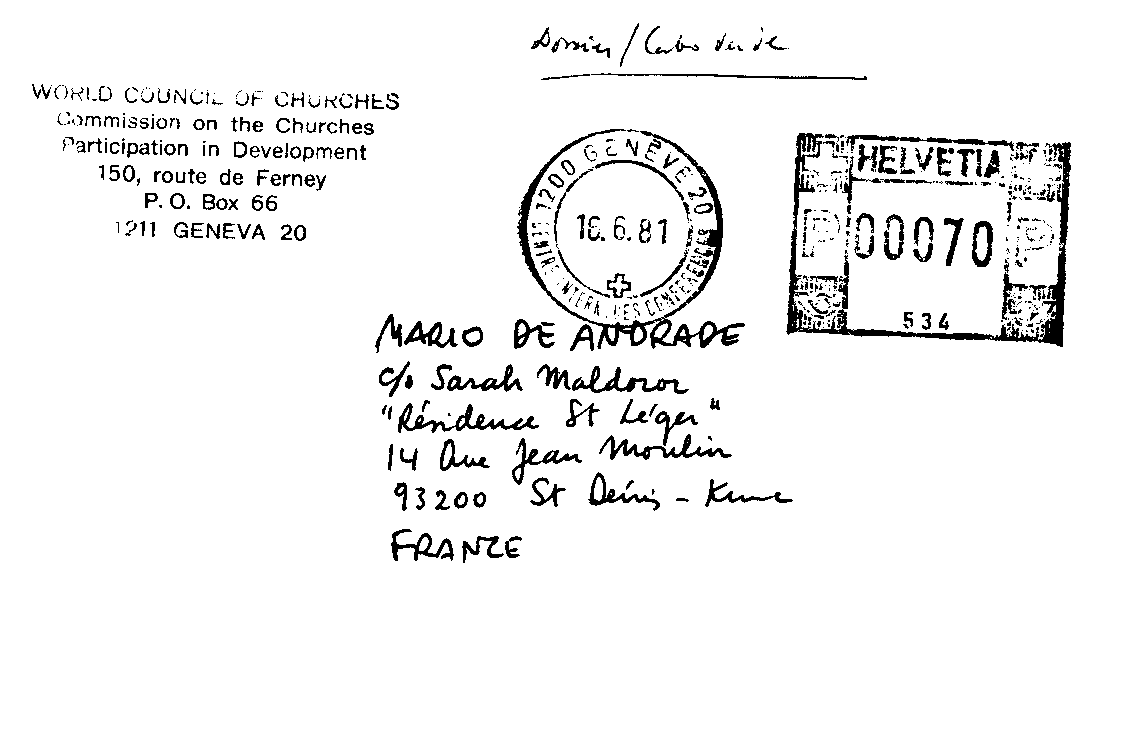 Dossier / Cabo Verde
WORLD COUNCIL OF CHURCHES
Commission on the Churches
Participation in Development
150, route de Ferney
P. O. Box 66
1211 GENEVA 20
1200 GENÈVE 20
CENTRE INTERN. DES CONFERENCES
16.6.81
HELVETIA
P 00070 P
534
MARIO DE ANDRADE
c/o Sarah Maldoror
"Résidence St Léger"
14 Ave Jean Moulin
93200 St Denis -
FRANCE